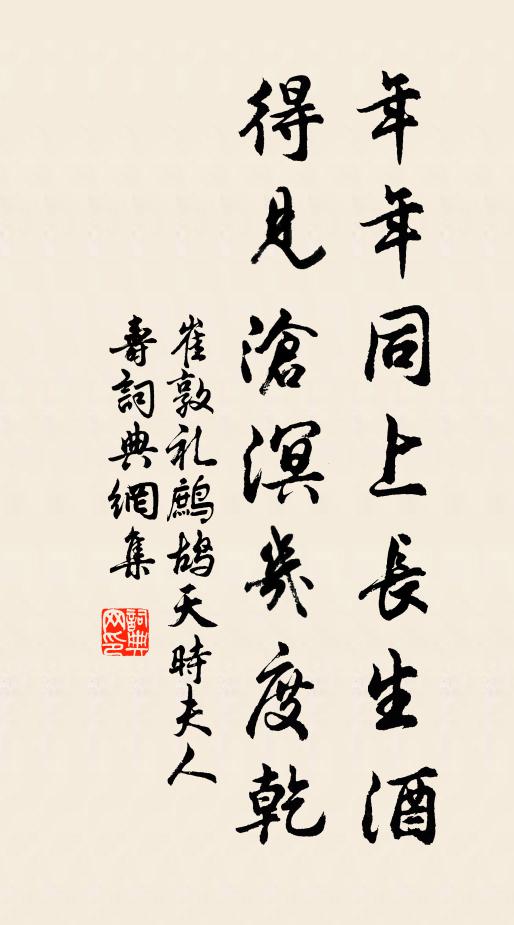 年年同上長生酒
得見滄溟幾度乾
崔敦礼鷓鴣天時夫人
壽詞典網集
詞典
网印